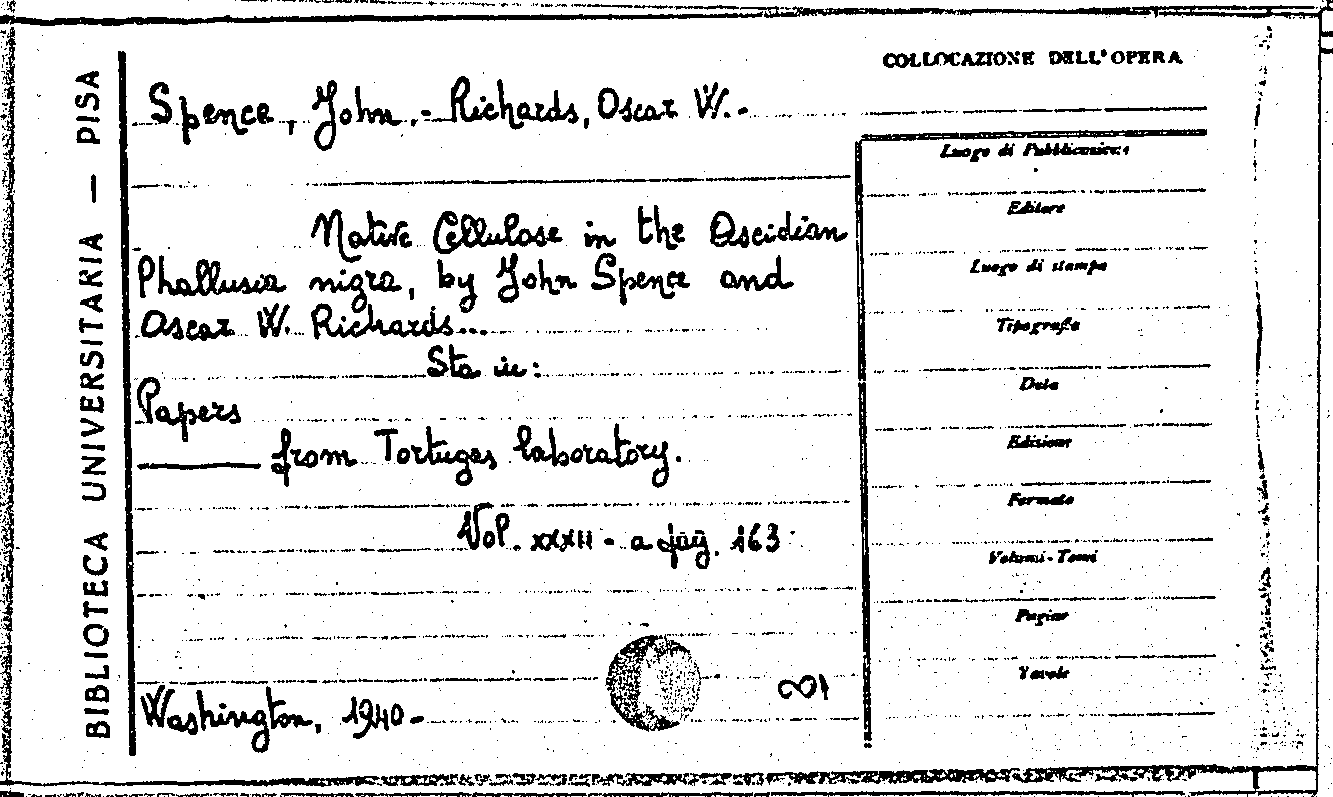 BIBLIOTECA UNIVERSITARIA — PISA
COLLOCAZIONE DELL'OPERA
Spence, John.- Richards, Oscar W.-
Native Cellulose in the Ascidian
Phallusia nigra, by John Spence and
Oscar W. Richards...
Sta in:
Papers
from Tortugas laboratory.
Vol. XXXII - a pag. 163
Washington, 1940-
Luogo di Pubblicazione
Editore
Luogo di stampa
Tipografia
Data
Edizione
Formato
Volumi - Tomi
Pagine
Tavole